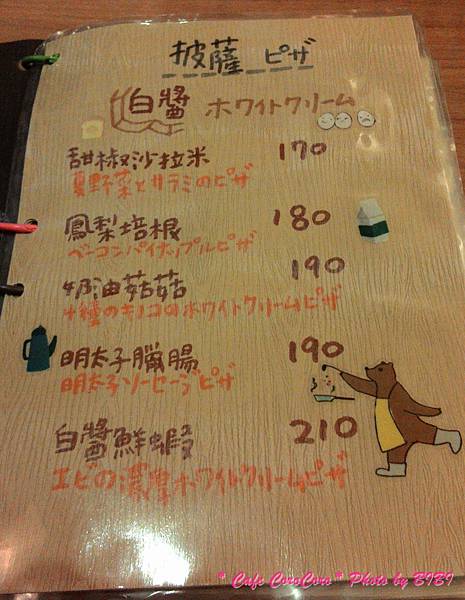 披薩 ピザ
白醬 ホワイトクリーム
甜椒沙拉米 170
夏野菜とサラミのピザ
鳳梨培根 180
ベーコンパイナップルピザ
奶油菇菇 190
4種のキノコのホワイトクリームピザ
明太子臘腸 190
明太子ソーセージピザ
白醬鮮蝦 210
エビの濃厚ホワイトクリームピザ
* Cafe CoroCoro * Photo by BIBI